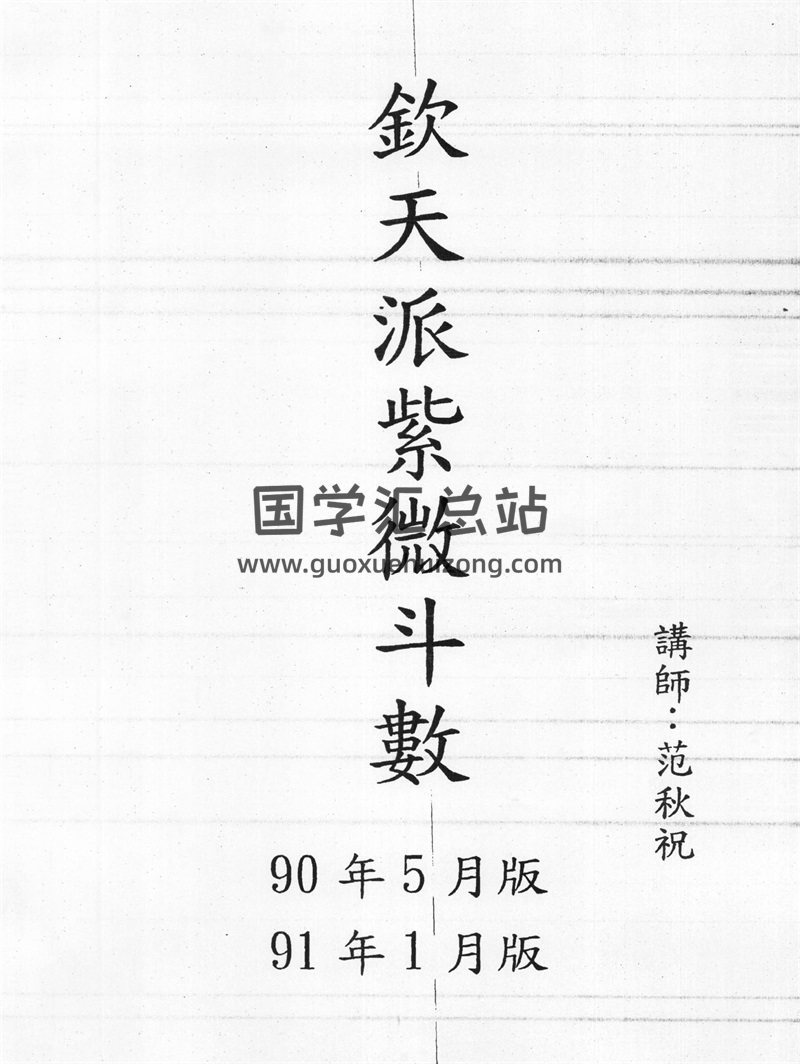 欽天派紫微斗數
国学汇总站
www.guoxuehuizong.com
講師：范秋祝
90年5月版
91年1月版